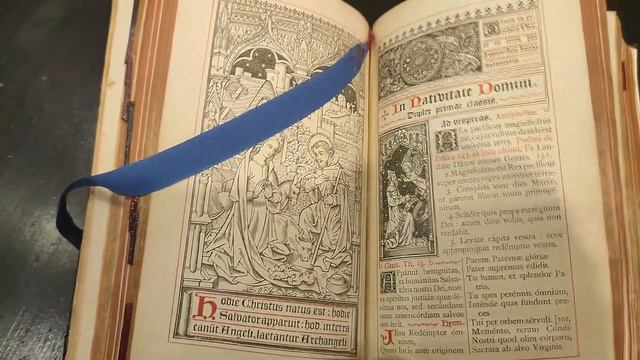 Hodie Christus natus est: hodie
Salvator apparuit: hod. in terra
canūt Angeli, laetantur Archangeli
In Nativitate Domini.
Duplex primae classis.
Ad vesperas, Antiphonæ.
Rex pacificus magnificatus
est, cujus vultum desiderat
universa terra.
2. Magnificatus est Rex pacificus
super omnes reges universæ terræ
3. Completi sunt dies Mariæ,
ut pareret filium suum primoge-
nitum.
4. Scitote quia prope est regnum
Dei: amen dico vobis, quia non
tardabit.
5. Levate capita vestra: ecce
appropinquat redemptio vestra.
Capit. Tit. iij. b
Apparuit benignitas,
et humanitas Salva-
toris nostri Dei, non
ex operibus justitiæ quæ fe-
cimus nos, sed secundum
suam misericordiam salvos
nos fecit. Hymn.
Jesu Redemptor óm-
nium,
Quem lucis ante originem
Parem Patérnæ glóriæ
Pater suprémus édidit.
Tu lumen, et splendor Pa-
tris,
Tu spes perénnis ómnium,
Inténde quas fundunt pre-
ces
Tui per orbem sérvuli.
Meménto, rerum Cóndi-
Nostri quod olim córporis,
Sacráta ab alvo Vírginis